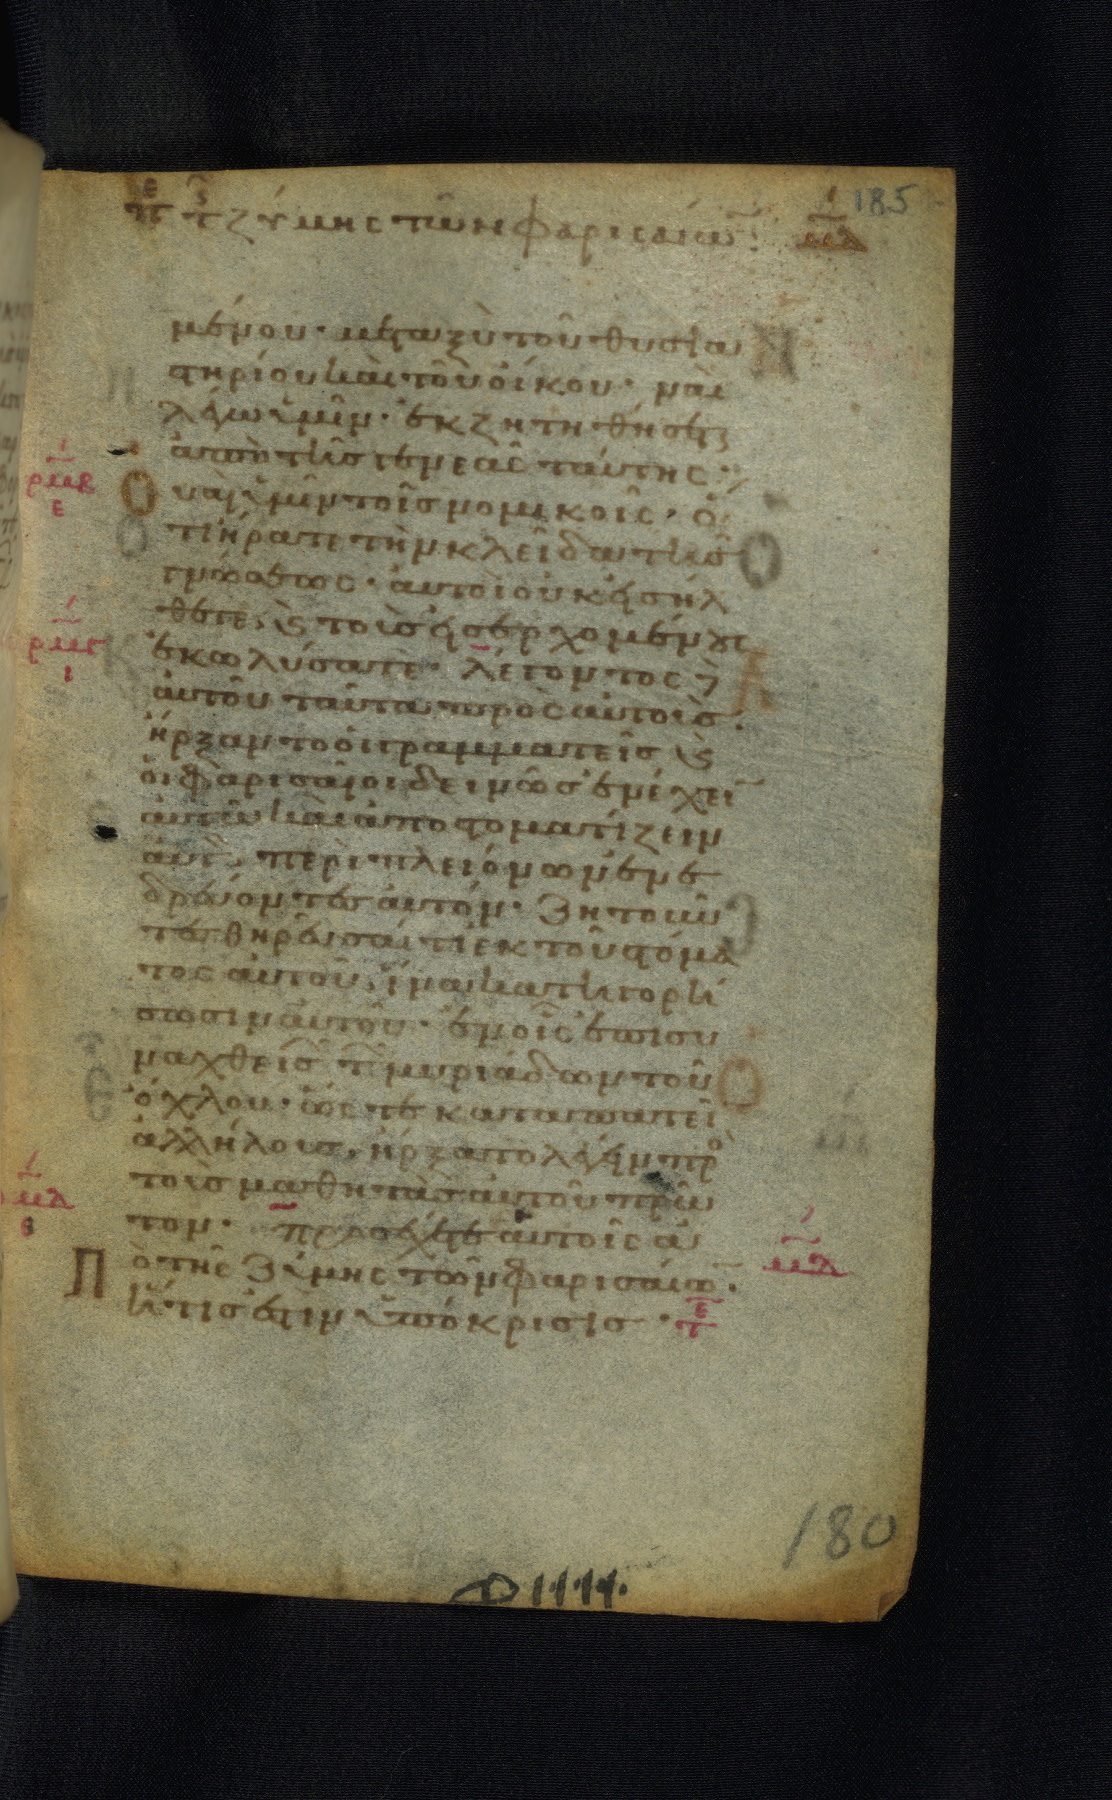 185
π τ ζύμης τῶν φαρισαίω
μένου· μεταξὺ τοῦ θυσια
στηρίου καὶ τοῦ οἴκου· ναὶ
λέγω ὑμῖν· ἐκζητηθήσεται
ἀπὸ τῆς γενεᾶς ταύτης·
Οὐαὶ ὑμῖν τοῖς νομικοῖς· ὅ
τι ἤρατε τὴν κλεῖδα τῆς
γνώσεως· αὐτοὶ οὐκ εἰσήλ
θετε, ϗ τοὺς εἰσερχομένους
ἐκωλύσατε· λέγοντος δὲ
αὐτοῦ ταῦτα πρὸς αὐτοὺς·
ἤρξαντο οἱ γραμματεῖς ϗ
οἱ φαρισαῖοι δεινῶς ἐνέχειν
αὐτῶ καὶ ἀποστοματίζειν
αὐτὸν περὶ πλειόνων ἐνε
δρεύοντες αὐτόν· ζητοῦν
τες θηρεῦσαί τι ἐκ τοῦ στόμα
τος αὐτοῦ, ἵνα κατηγορή
σωσιν αὐτοῦ· ἐν οἷς ἐπισυ
ναχθεισῶν τῶν μυριάδων τοῦ
ὄχλου· ὥστε καταπατεῖ
ἀλλήλους, ἤρξατο λέγειν πρὸ
τοὺς μαθητὰς αὐτοῦ πρῶ
τον· προσέχετε ἑαυτοῖς ἀ
πὸ τῆς ζύμης τῶν φαρισαίω·
ἥτις ἐστὶν ὑπόκρισις·
180